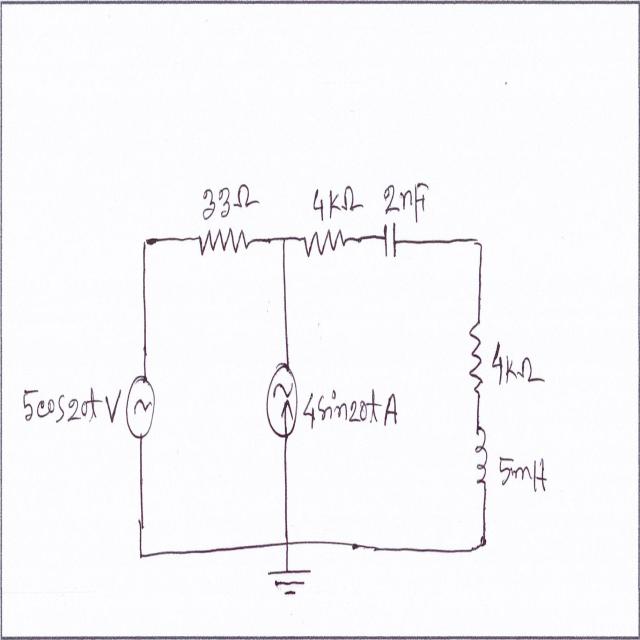 33Ω 4kΩ 2nF
5cos20t V
4sin20t A
4kΩ
5mH